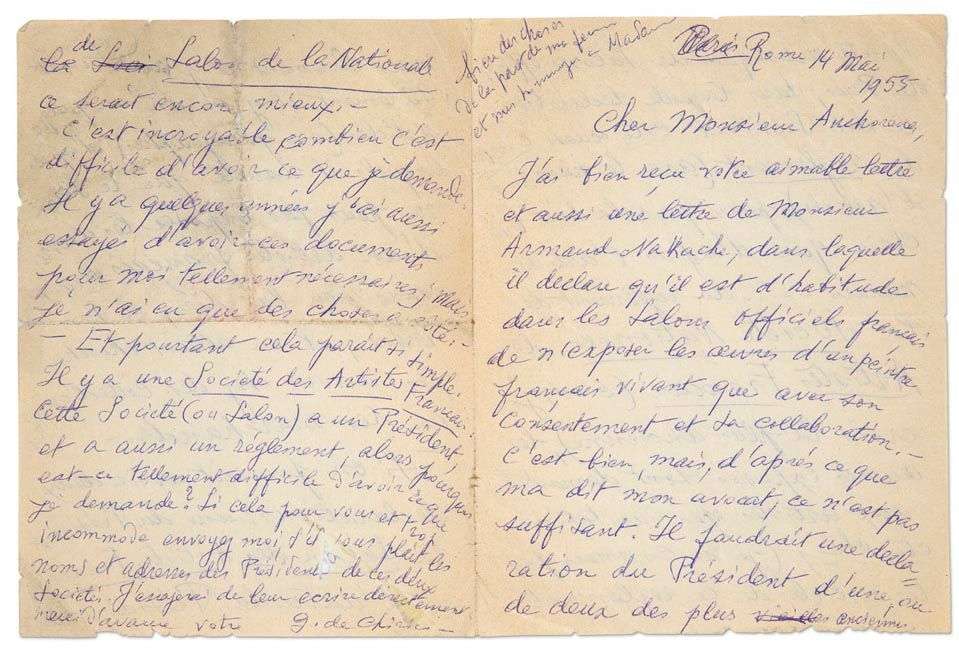 Paris Rome 14 Mai
1955
Cher Monsieur Anchorena,
J'ai bien reçu votre aimable lettre
et aussi une lettre de Monsieur
Armand Nakache, dans laquelle
il déclare qu'il est d'habitude
dans les Salons officiels français
de n'exposer les œuvres d'un peintre
français vivant que avec son
consentement et sa collaboration.—
C'est bien, mais, d'après ce que
ma dit mon avocat, ce n'est pas
suffisant. Il faudrait une décla=
ration du Président d'une, ou
de deux des plus vieilles anciennes
de Salon de la Nationale
ce serait encore mieux.—
C'est incroyable combien c'est
difficile d'avoir ce que je demande.
Il y a quelques années j'ai aussi
essayés d'avoir ces documents
pour moi tellement nécessaires; mais
je n'ai eu que des choses à côté.—
— Et pourtant cela paraît si simple.
Il y a une Société des Artistes Français.
Cette Société (ou Salon) a un Président,
et a aussi un règlement, alors pourquoi
est-ce tellement difficile d'avoir ce que
je demande? Si cela pour vous et trop
incommode envoyez moi, s'il vous plaît les
noms et adresses des Présidents de ces deux
Sociétés. J'essayerai de leur écrire directement
merci d'avance votre G. de Chirico—
bien des choses
de la part de ma femme
et mes hommages à Madame